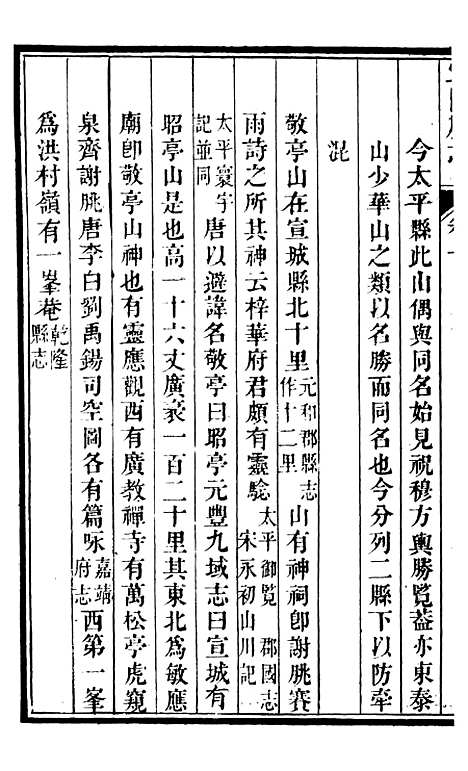 今太平縣此山偶與同名始見祝穆方輿勝覽葢亦東泰
山少華山之類以名勝而同名也今分列二縣下以防牽
混
敬亭山在宣城縣北十里元和郡縣志作十二里山有神祠卽謝朓賽
雨詩之所其神云梓華府君頗有靈驗太平御覽 郡國志 宋永初山川記
太平寰宇記並同唐以避諱名敬亭曰昭亭元豐九域志曰宣城有
昭亭山是也高一十六丈廣袤一百二十里其東北為敏應
廟卽敬亭山神也有靈應觀西有廣教禪寺有萬松亭虎窺
泉齊謝朓唐李白劉禹錫司空圖各有篇咏嘉靖府志西第一峯
為洪村嶺有一峯菴乾隆縣志